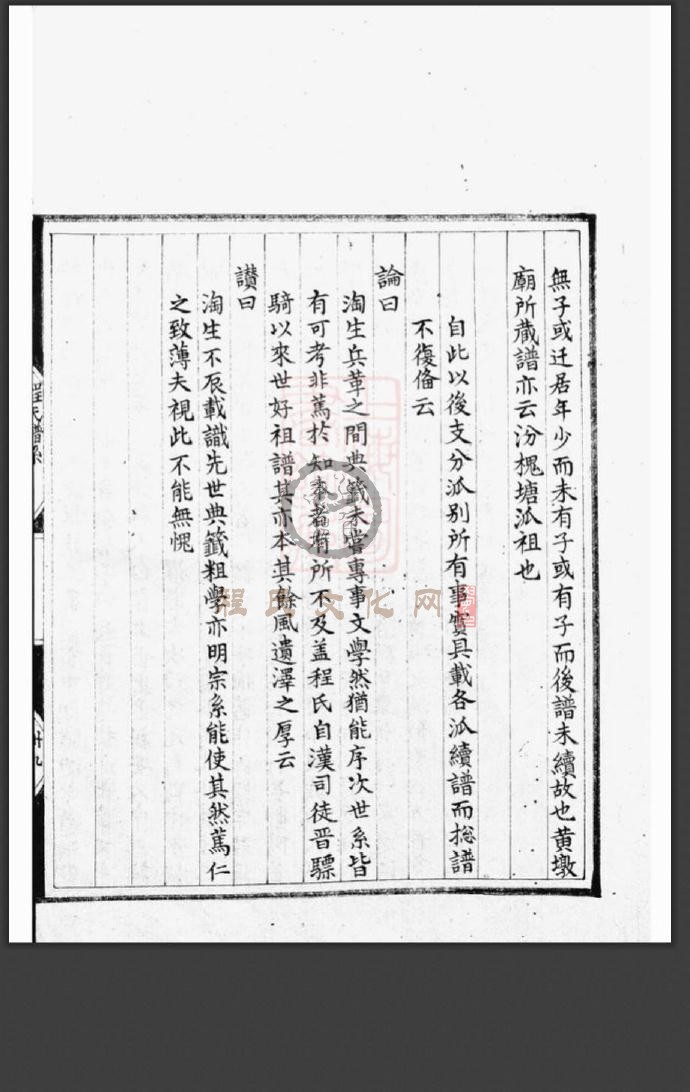 無子或迁居年少而未有子或有子而後譜未續故也黄墩
廟所蔵譜亦云汾槐塘派祖也
自此以後支分派别所有事實具載各派續譜而捴譜
不復俻云
論曰
淘生兵革之間典籖未嘗專事文學然猶能序次世系皆
有可考非篤於知本者有所不及盖程氏自漢司徒晋驃
騎以來世好祖譜其亦本其餘風遺澤之厚云
讃曰
淘生不辰載識先世典籖粗學亦明宗系能使其然篤仁
之致薄夫視此不能無愧
程氏譜系
廿九
程氏文化网